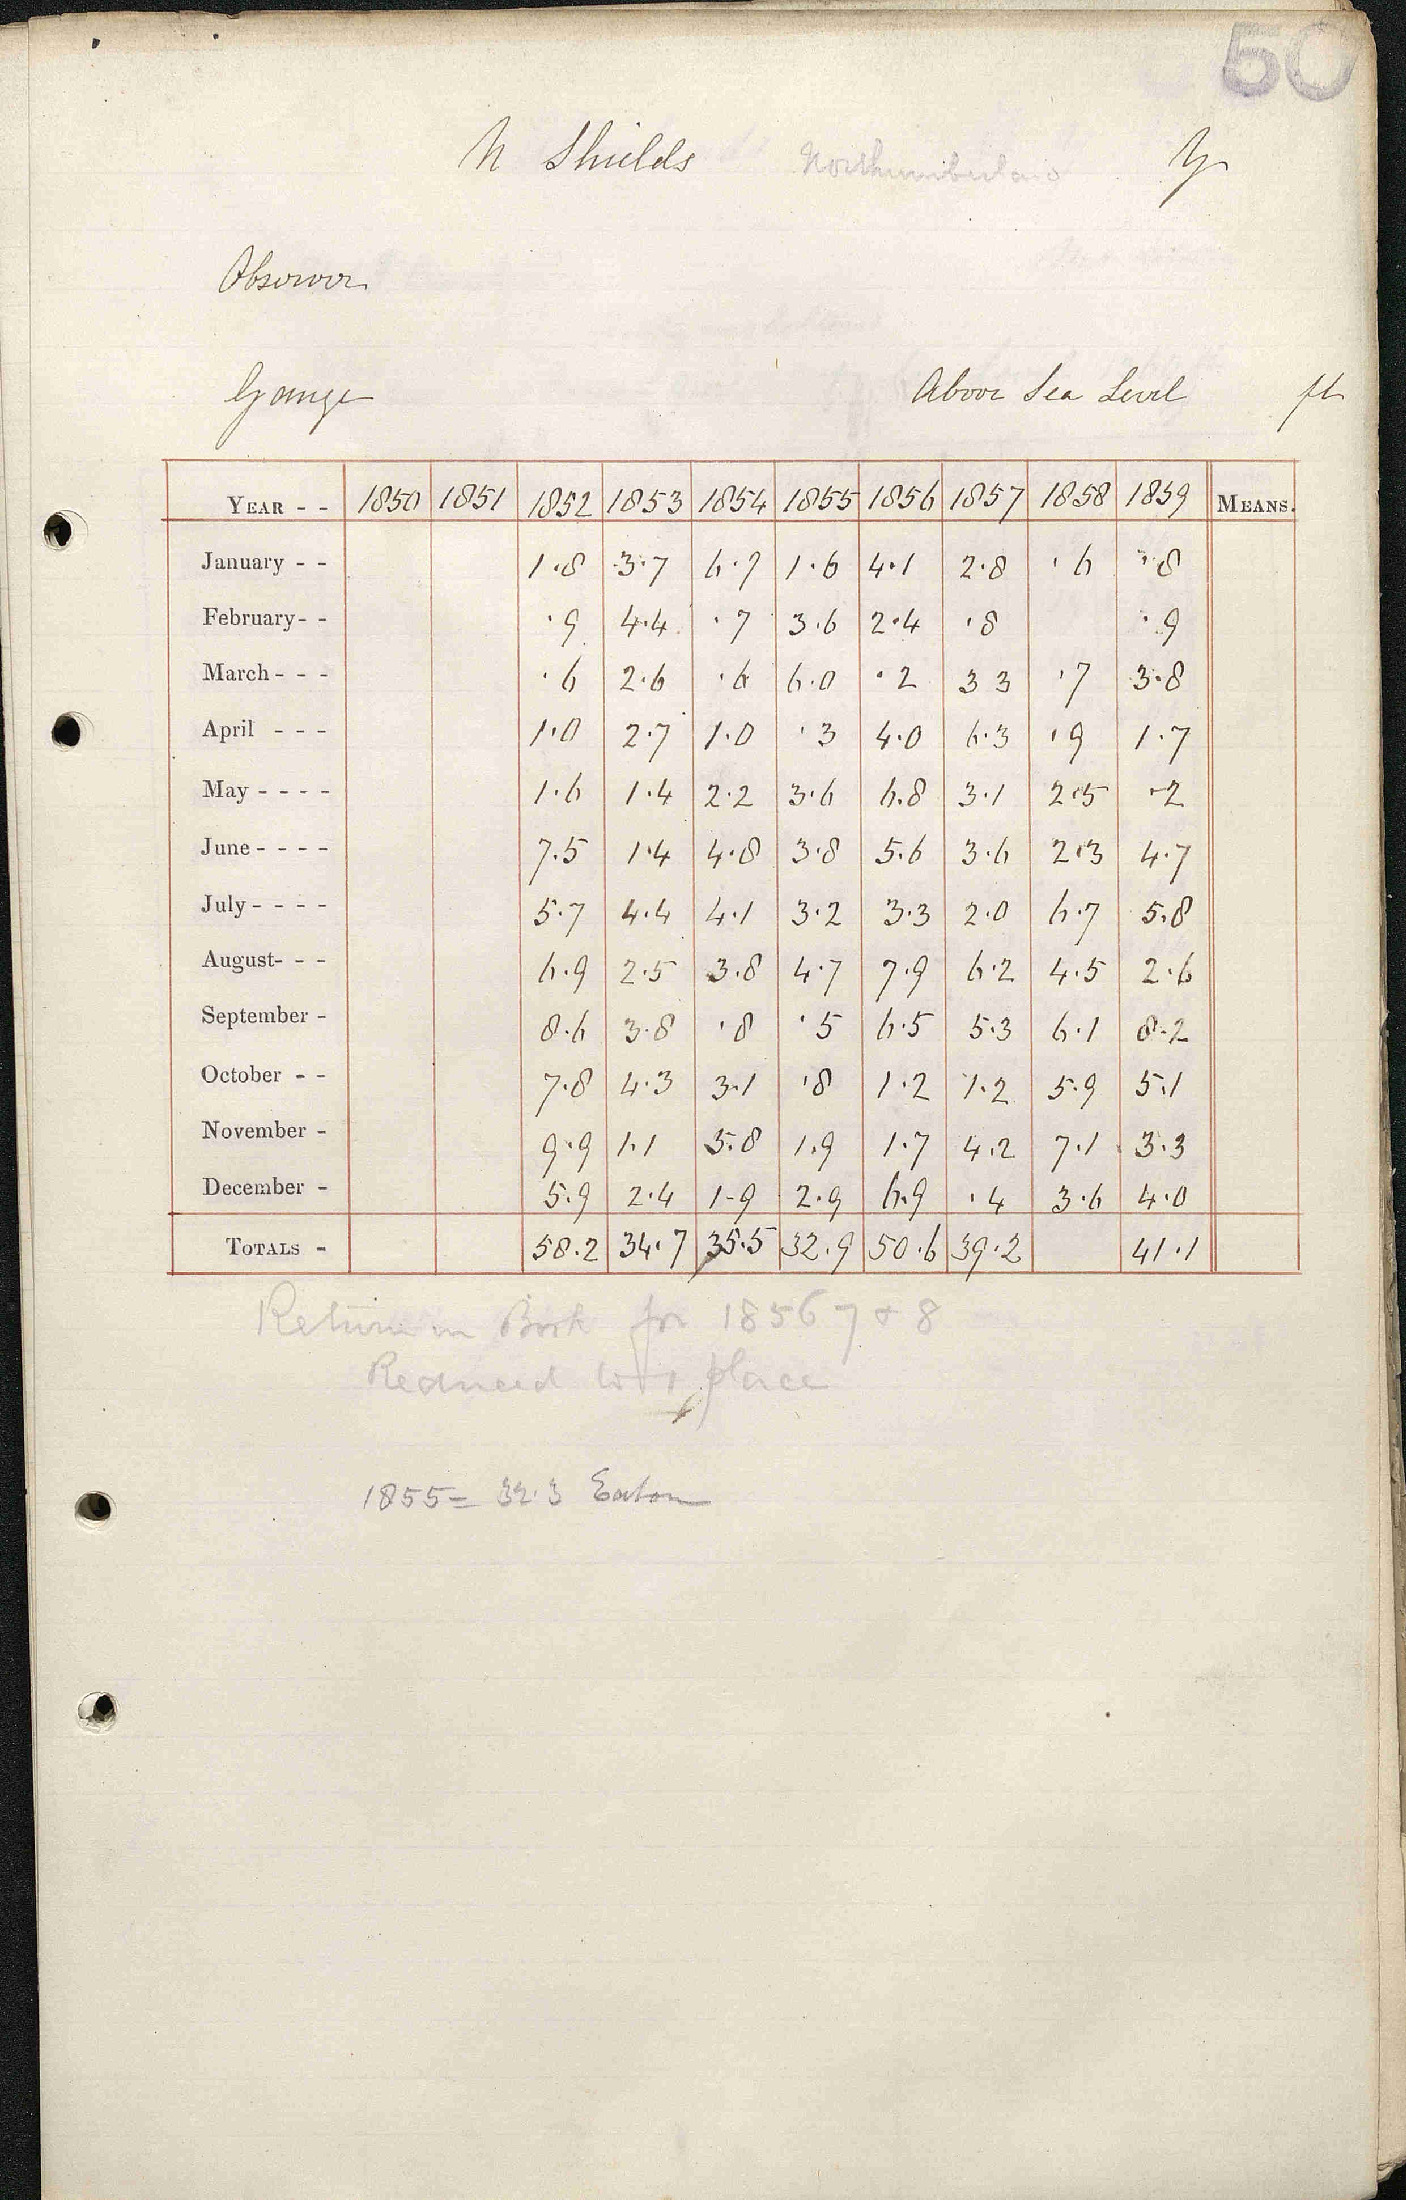 50
N Shields Northumberland
Observer
Gauge Above Sea Level ft
YEAR - - 1850 1851 1852 1853 1854 1855 1856 1857 1858 1859 MEANS.
January - - 1.8 3.7 6.7 1.6 4.1 2.8 .6 .8
February - - .9 4.4 .7 3.6 2.4 .8 .9
March - - - .6 2.6 .6 6.0 .2 3 3 .7 3.8
April - - - 1.0 2.7 1.0 .3 4.0 6.3 .9 1.7
May - - - - 1.6 1.4 2.2 3.6 6.8 3.1 2.5 .2
June - - - - 7.5 1.4 4.8 3.8 5.6 3.6 2.3 4.7
July - - - - 5.7 4.4 4.1 3.2 3.3 2.0 6.7 5.8
August - - - 6.9 2.5 3.8 4.7 7.9 6.2 4.5 2.6
September - 8.6 3.8 .8 .5 6.5 5.3 6.1 8.2
October - - 7.8 4.3 3.1 .8 1.2 1.2 5.9 5.1
November - 9.9 1.1 5.8 1.9 1.7 4.2 7.1 3.3
December - 5.9 2.4 1.9 2.9 6.9 .4 3.6 4.0
TOTALS - 58.2 34.7 35.5 32.9 50.6 39.2 41.1
Return in Book for 1856 7 & 8
Reduced to 1 place
1855 = 32.3 Eaton